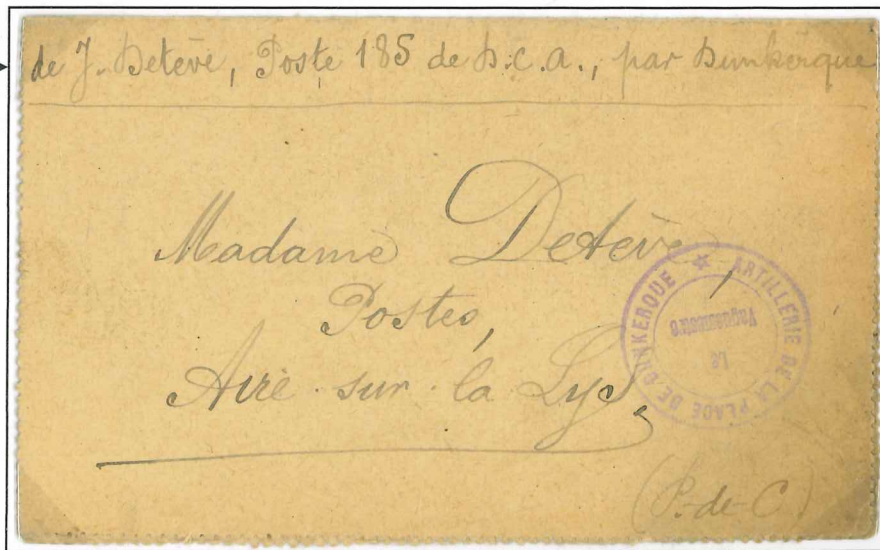 de J. Detève, Poste 185 de D.C.A., par Dunkerque
Madame Detève,
Postes,
Aire-sur-la Lys,
(P.-de-C)
ARTILLERIE DE LA PLACE DE DUNKERQUE
Le
Vaguemestre